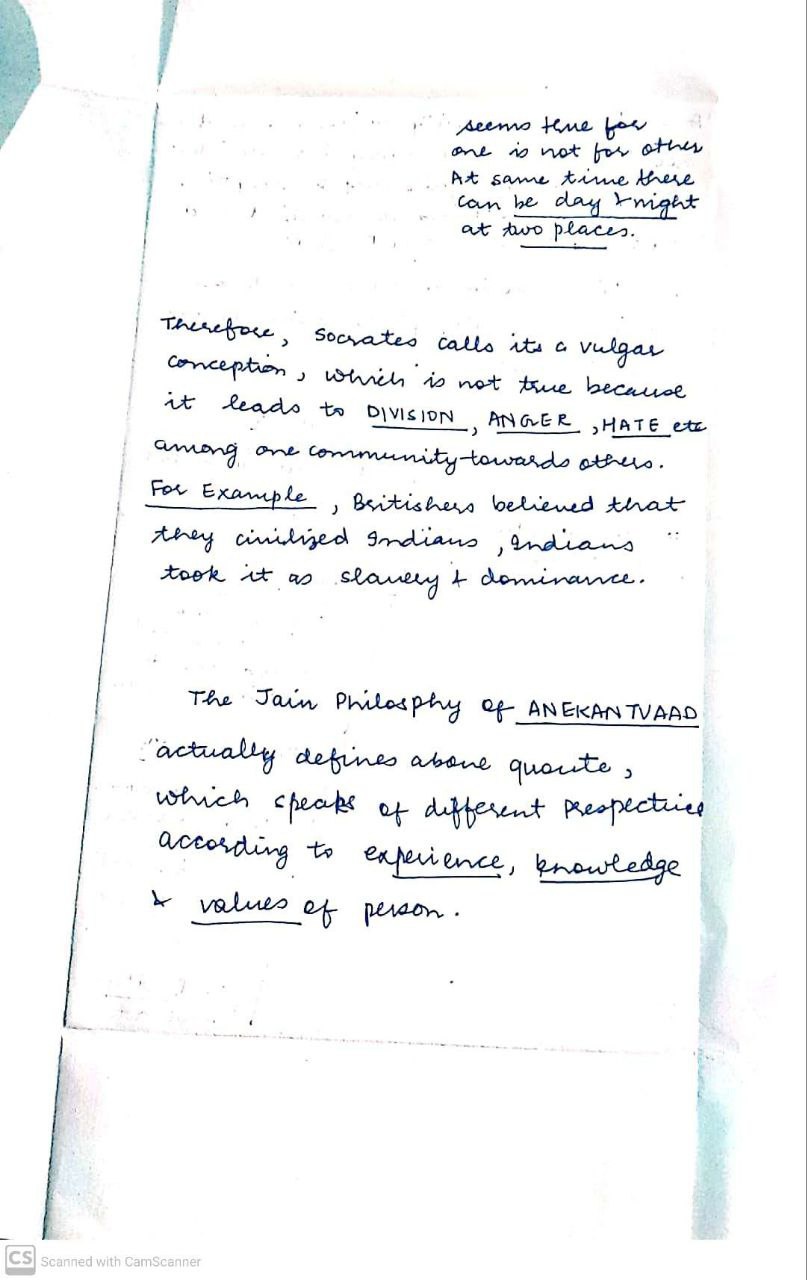 seems true for
one is not for other
At same time there
can be day & night
at two places.
Therefore, Socrates calls its a vulgar
conception, which is not true because
it leads to DIVISION, ANGER, HATE etc
among one community towards others.
For Example, Britishers believed that
they civilized Indians, Indians
took it as slavery & dominance.
The Jain Philosphy of ANEKANTVAAD
actually defines above quoute,
which speaks of different prespectives
according to experience, knowledge
& values of person.
CS Scanned with CamScanner